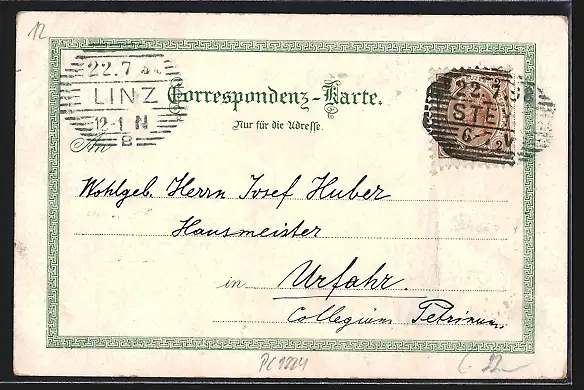 12
22.7
LINZ
12-1 N
B
Correspondenz-Karte.
Nur für die Adresse.
An
22.7
STEY
6-7 V
Wohlgeb. Herrn Josef Huber
Hausmeister
in Urfahr.
Collegium Petrinum
PC1224
22